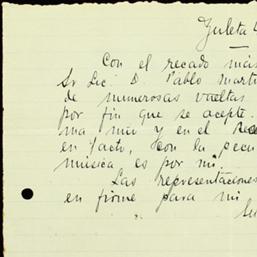 Juleta
Con el recado más
Sr Lic. D. Pablo Marti
de numerosas vueltas
por fin que se acepte.
ma mir y en el
en Jacto, con la pecu
música, es por mi.
Las representaciones
en firme para mi
Su